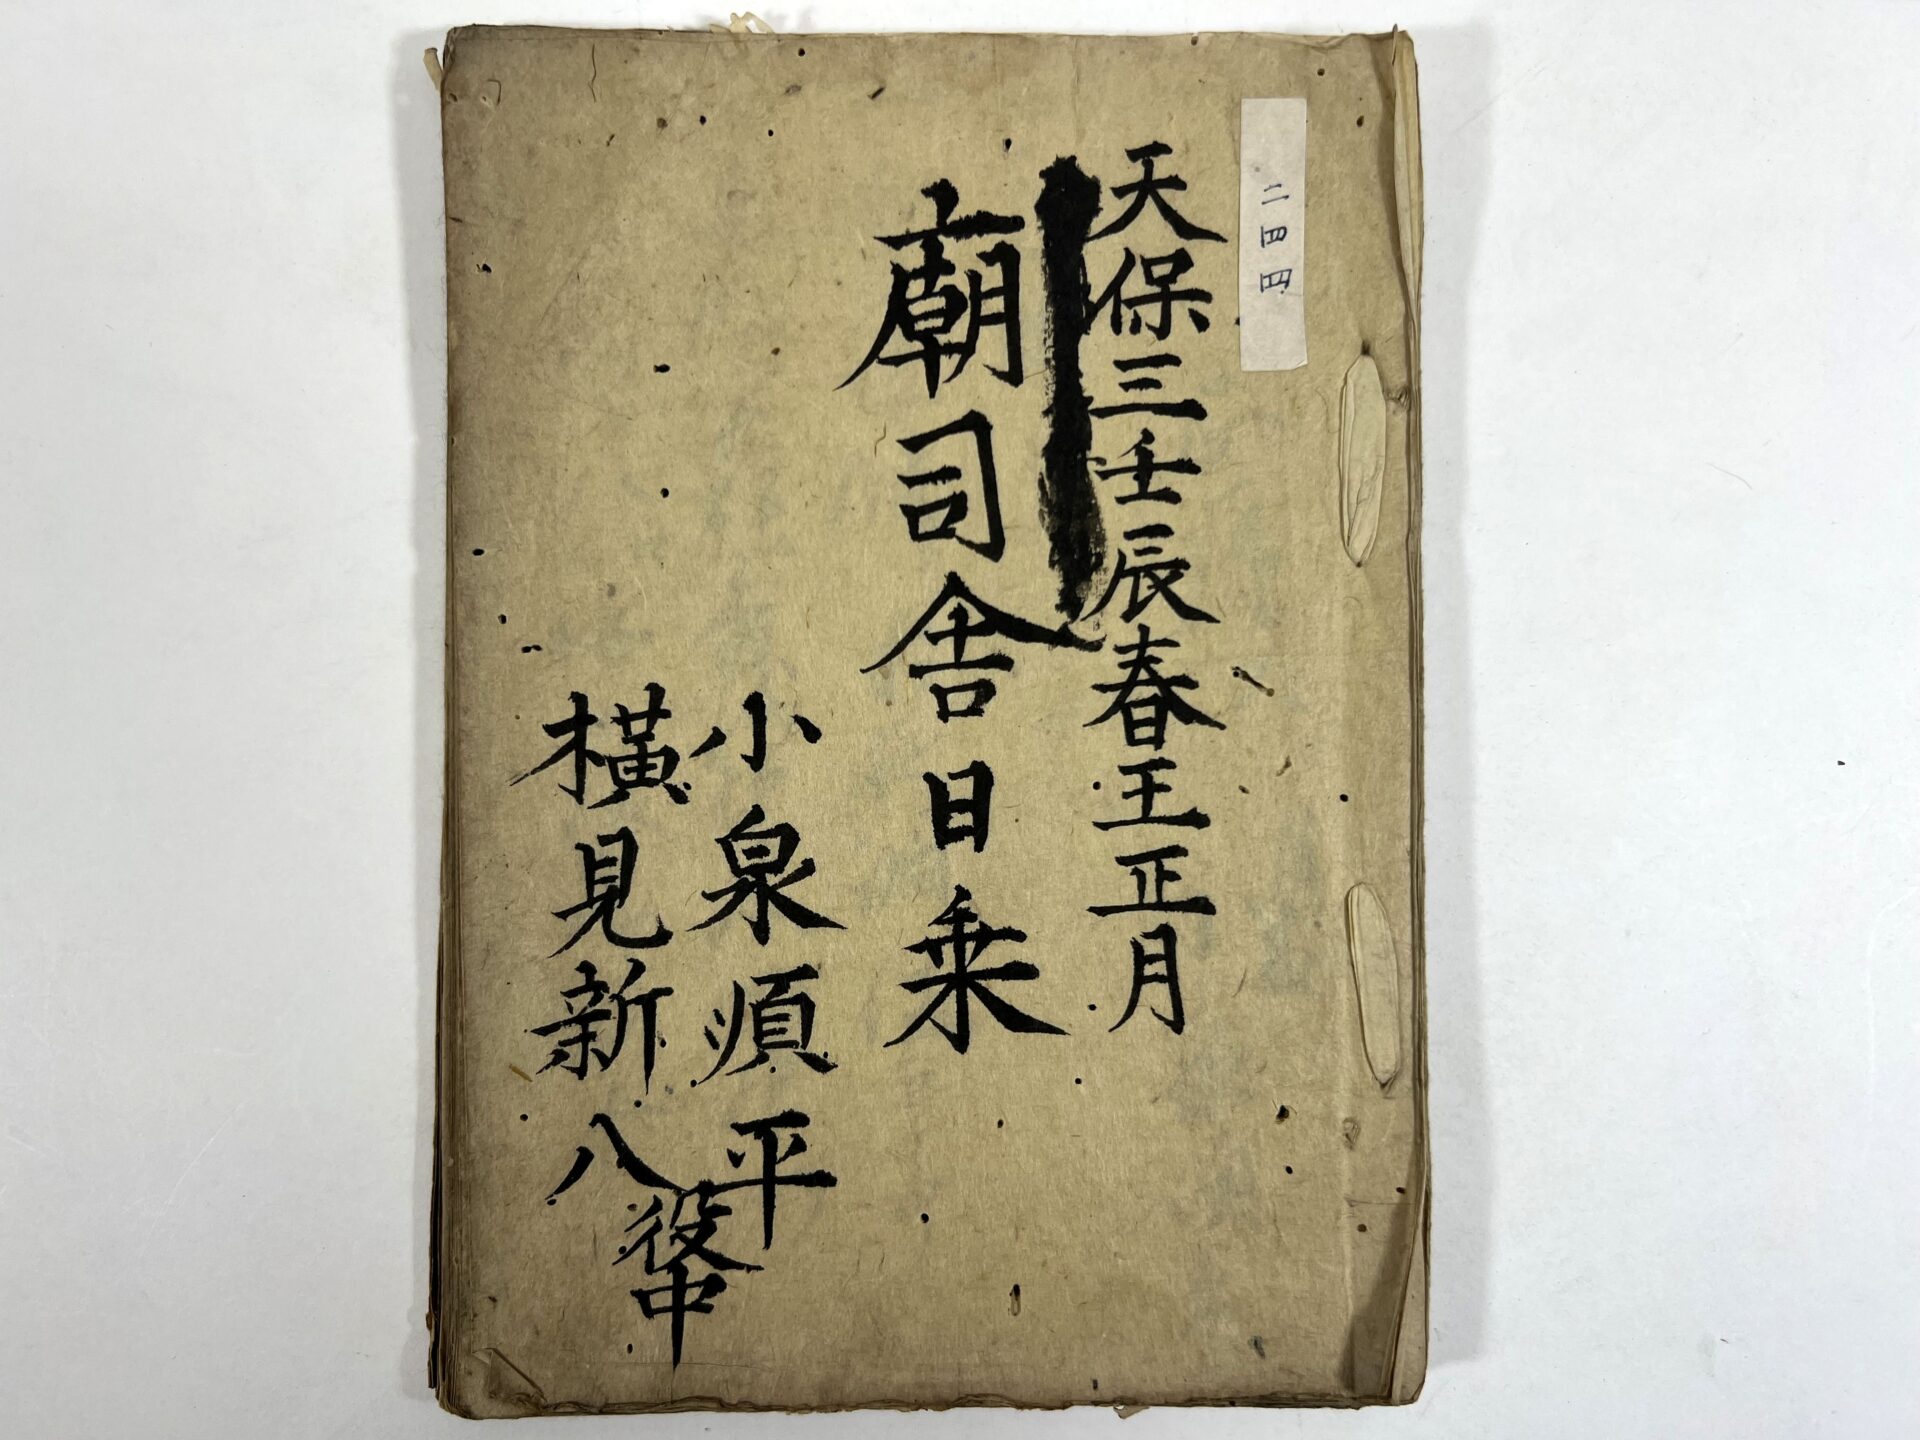 二四四
天保三壬辰春王正月
廟司舎日乗
小泉順平
横見新八
役中